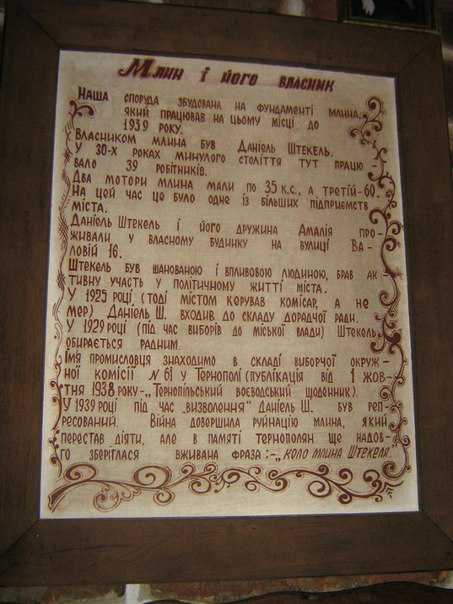 Млин і його власник
Наша споруда збудована на фундаменті млина,
який працював на цьому місці до
1939 року.
Власником млина був Даніель Штекель.
У 30-х роках минулого століття тут працю
вало 39 робітників.
Два мотори млина мали по 35 к.с., а третій-60.
На цей час це було одне із більших підприємств
міста.
Даніель Штекель і його дружина Амалія про-
живали у власному будинку на вулиці Ва-
ловій 16.
Штекель був шанованою і впливовою людиною, брав ак
тивну участь у політичному житті міста.
У 1925 році, (тоді містом керував комісар, а не
мер) Даніель Ш. входив до складу дорадчої ради.
У 1929 році (під час виборів до міської влади) Штекель
обирається радним.
Імя промисловця знаходимо в складі виборчої окруж-
ної комісії №61 у Тернополі (публікація від 1 жов-
тня 1938 року-„Тернопільський воєводський щоденник).
У 1939 році під час „визволення" Даніель Ш. був реп-
ресований. Війна довершила руйнацію млина, який
перестав діяти, але в памяті тернополян ще надов-
го зберіглася вживана фраза:-„коло млина Штекеля"